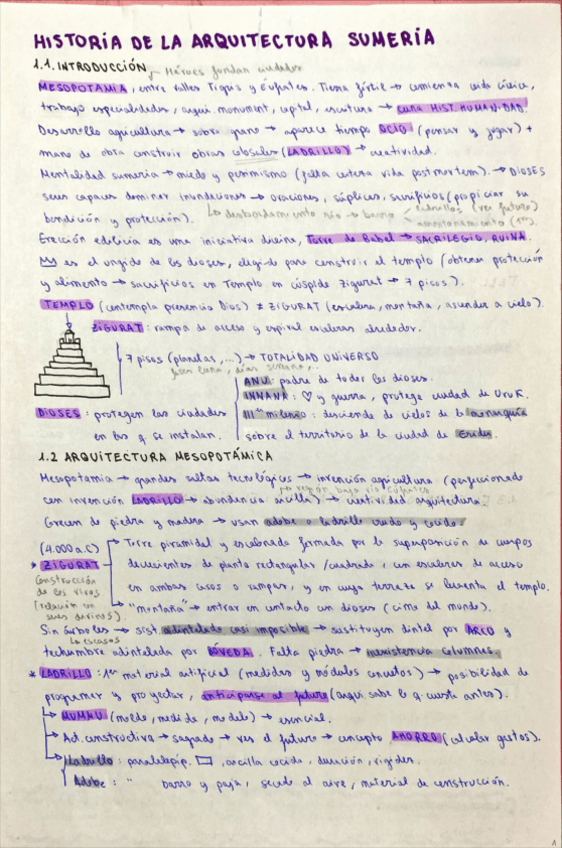 HISTORIA DE LA ARQUITECTURA SUMERIA
1.1. INTRODUCCIÓN
Héroes fundan ciudades
MESOPOTAMIA, entre valles Tigris y Éufrates. Tierra fértil → comienza vida cívica,
trabajo especialidades, arqui monument, capital, escritura → cuna HIST. HUMANIDAD.
Desarrollo agricultura → sobra grano → aparece tiempo OCIO (pensar y jugar) +
mano de obra construir obras colosales (LADRILLO) → creatividad.
Mentalidad sumeria → miedo y pesimismo (falta certeza vida postmortem). → DIOSES
seres capaces dominar inundaciones → oraciones, súplicas, sacrificios (propiciar su
bendición y protección).
Lo desbordamiento ríos → barro
ladrillos (ver futuro)
amontonamiento (1º).
Erección edilicia es una iniciativa divina, Torre de Babel → SACRILEGIO, RUINA.
es el ungido de los dioses, elegido para construir el templo (obtener protección
y alimento → sacrificios en Templo en cúspide Zigurat → 7 pisos).
TEMPLO (contempla presencia Dios) ≠ ZIGURAT (escalera, montaña, ascender a cielo).
ZIGURAT: rampa de acceso y espiral escaleras alrededor.
7 pisos (planetas,...) → TOTALIDAD UNIVERSO
fases luna, días semana,..
ANU: padre de todos los dioses.
INNANA: ♡ y guerra, protege ciudad de Uruk.
DIOSES: protegen las ciudades
en las q se instalan.
IIIer milenio: desciende de cielos de la monarquía
sobre el territorio de la ciudad de Eridu.
1.2 ARQUITECTURA MESOPOTÁMICA
Mesopotamia → grandes saltos tecnológicos → invención agricultura (perfeccionado
región bajo río Éufrates
con invención LADRILLO → abundancia arcilla) → creatividad arquitectura.
Crecen de piedra y madera → usan adobe o ladrillo crudo y cocido.
(4.000 a.C)
* ZIGURAT
Torre piramidal y escalonada formada por la superposición de cuerpos
decrecientes de planta rectangular/cuadrada, con escaleras de acceso
en ambas caras o rampas, y en cuya terraza se levanta el templo.
Construcción
de los vivos
(relación con
seres divinos).
"montaña" → entrar en contacto con dioses (cima del mundo).
Sin árboles → sist adintelado casi imposible → sustituyen dintel por ARCO y
escasos
techumbre adintelada por BÓVEDA. Falta piedra → inexistencia columnas.
* LADRILLO: 1er material artificial (medidas y módulos concretos) → posibilidad de
programar y proyectar, anticiparse al futuro (arqui sabe lo q cuesta antes).
(molde, medida, modelo) → esencial.
Act. constructiva → sagrado → ver el futuro → concepto AHORRO (calcular gastos).
Ladrillo: paralelepip. , arcilla cocida, duración, rigidez.
Adobe: " barro y paja, secado al aire, material de construcción.
1